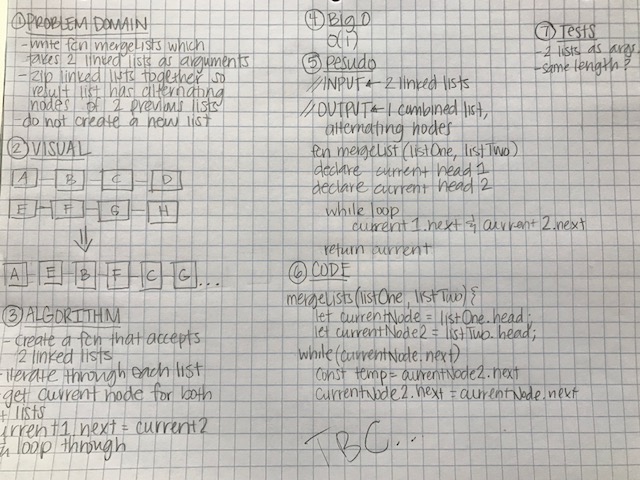 ① PROBLEM DOMAIN
- write fcn mergeLists which
takes 2 linked lists as arguments
- zip linked lists together so
result list has alternating
nodes of 2 previous lists
- do not create a new list
② VISUAL
A B C D
E F G H
A E B F C G ...
③ ALGORITHM
- create a fcn that accepts
2 linked lists
- iterate through each list
- get current node for both
lists
urrent1.next = current2
loop through
④ Big O
O(1)
⑤ Pesudo
//INPUT ← 2 linked lists
//OUTPUT ← 1 combined list,
alternating nodes
fcn mergeList (listOne, listTwo)
declare current head 1
declare current head 2
while loop
current 1.next & current 2.next
return current
⑥ CODE
mergeLists(listOne, listTwo) {
let currentNode = listOne.head;
let currentNode2 = listTwo.head;
while(currentNode.next)
const temp = currentNode2.next
currentNode2.next = currentNode.next
TBC...
⑦ Tests
- 2 lists as args
- same length?